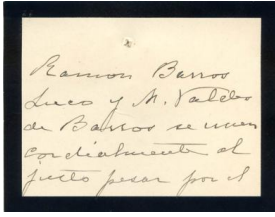 Ramon Barros
Luco y M. Valdes
de Barros se unen
cordialmente al
justo pesar por el